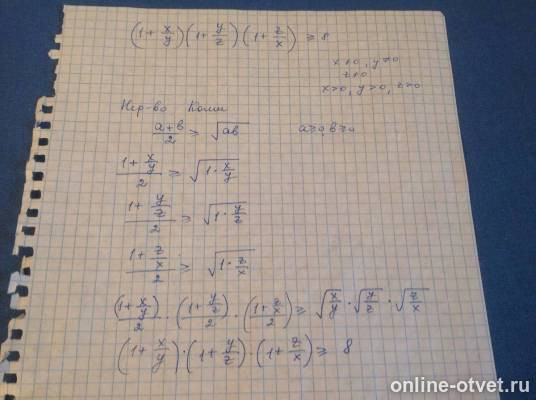 (1 + x/y)(1 + y/z)(1 + z/x) ≥ 8
x≠0, y≠0
z≠0
x>0, y>0, z>0
Нер-во Коши
(a+b)/2 ≥ √(ab) a≥0 b≥0
(1 + x/y)/2 ≥ √(1·x/y)
(1 + y/z)/2 ≥ √(1·y/z)
(1 + z/x)/2 ≥ √(1·z/x)
(1 + x/y)/2 · (1 + y/z)/2 · (1 + z/x)/2 ≥ √(x/y) · √(y/z) · √(z/x)
(1 + x/y) · (1 + y/z) · (1 + z/x) ≥ 8
online-otvet.ru